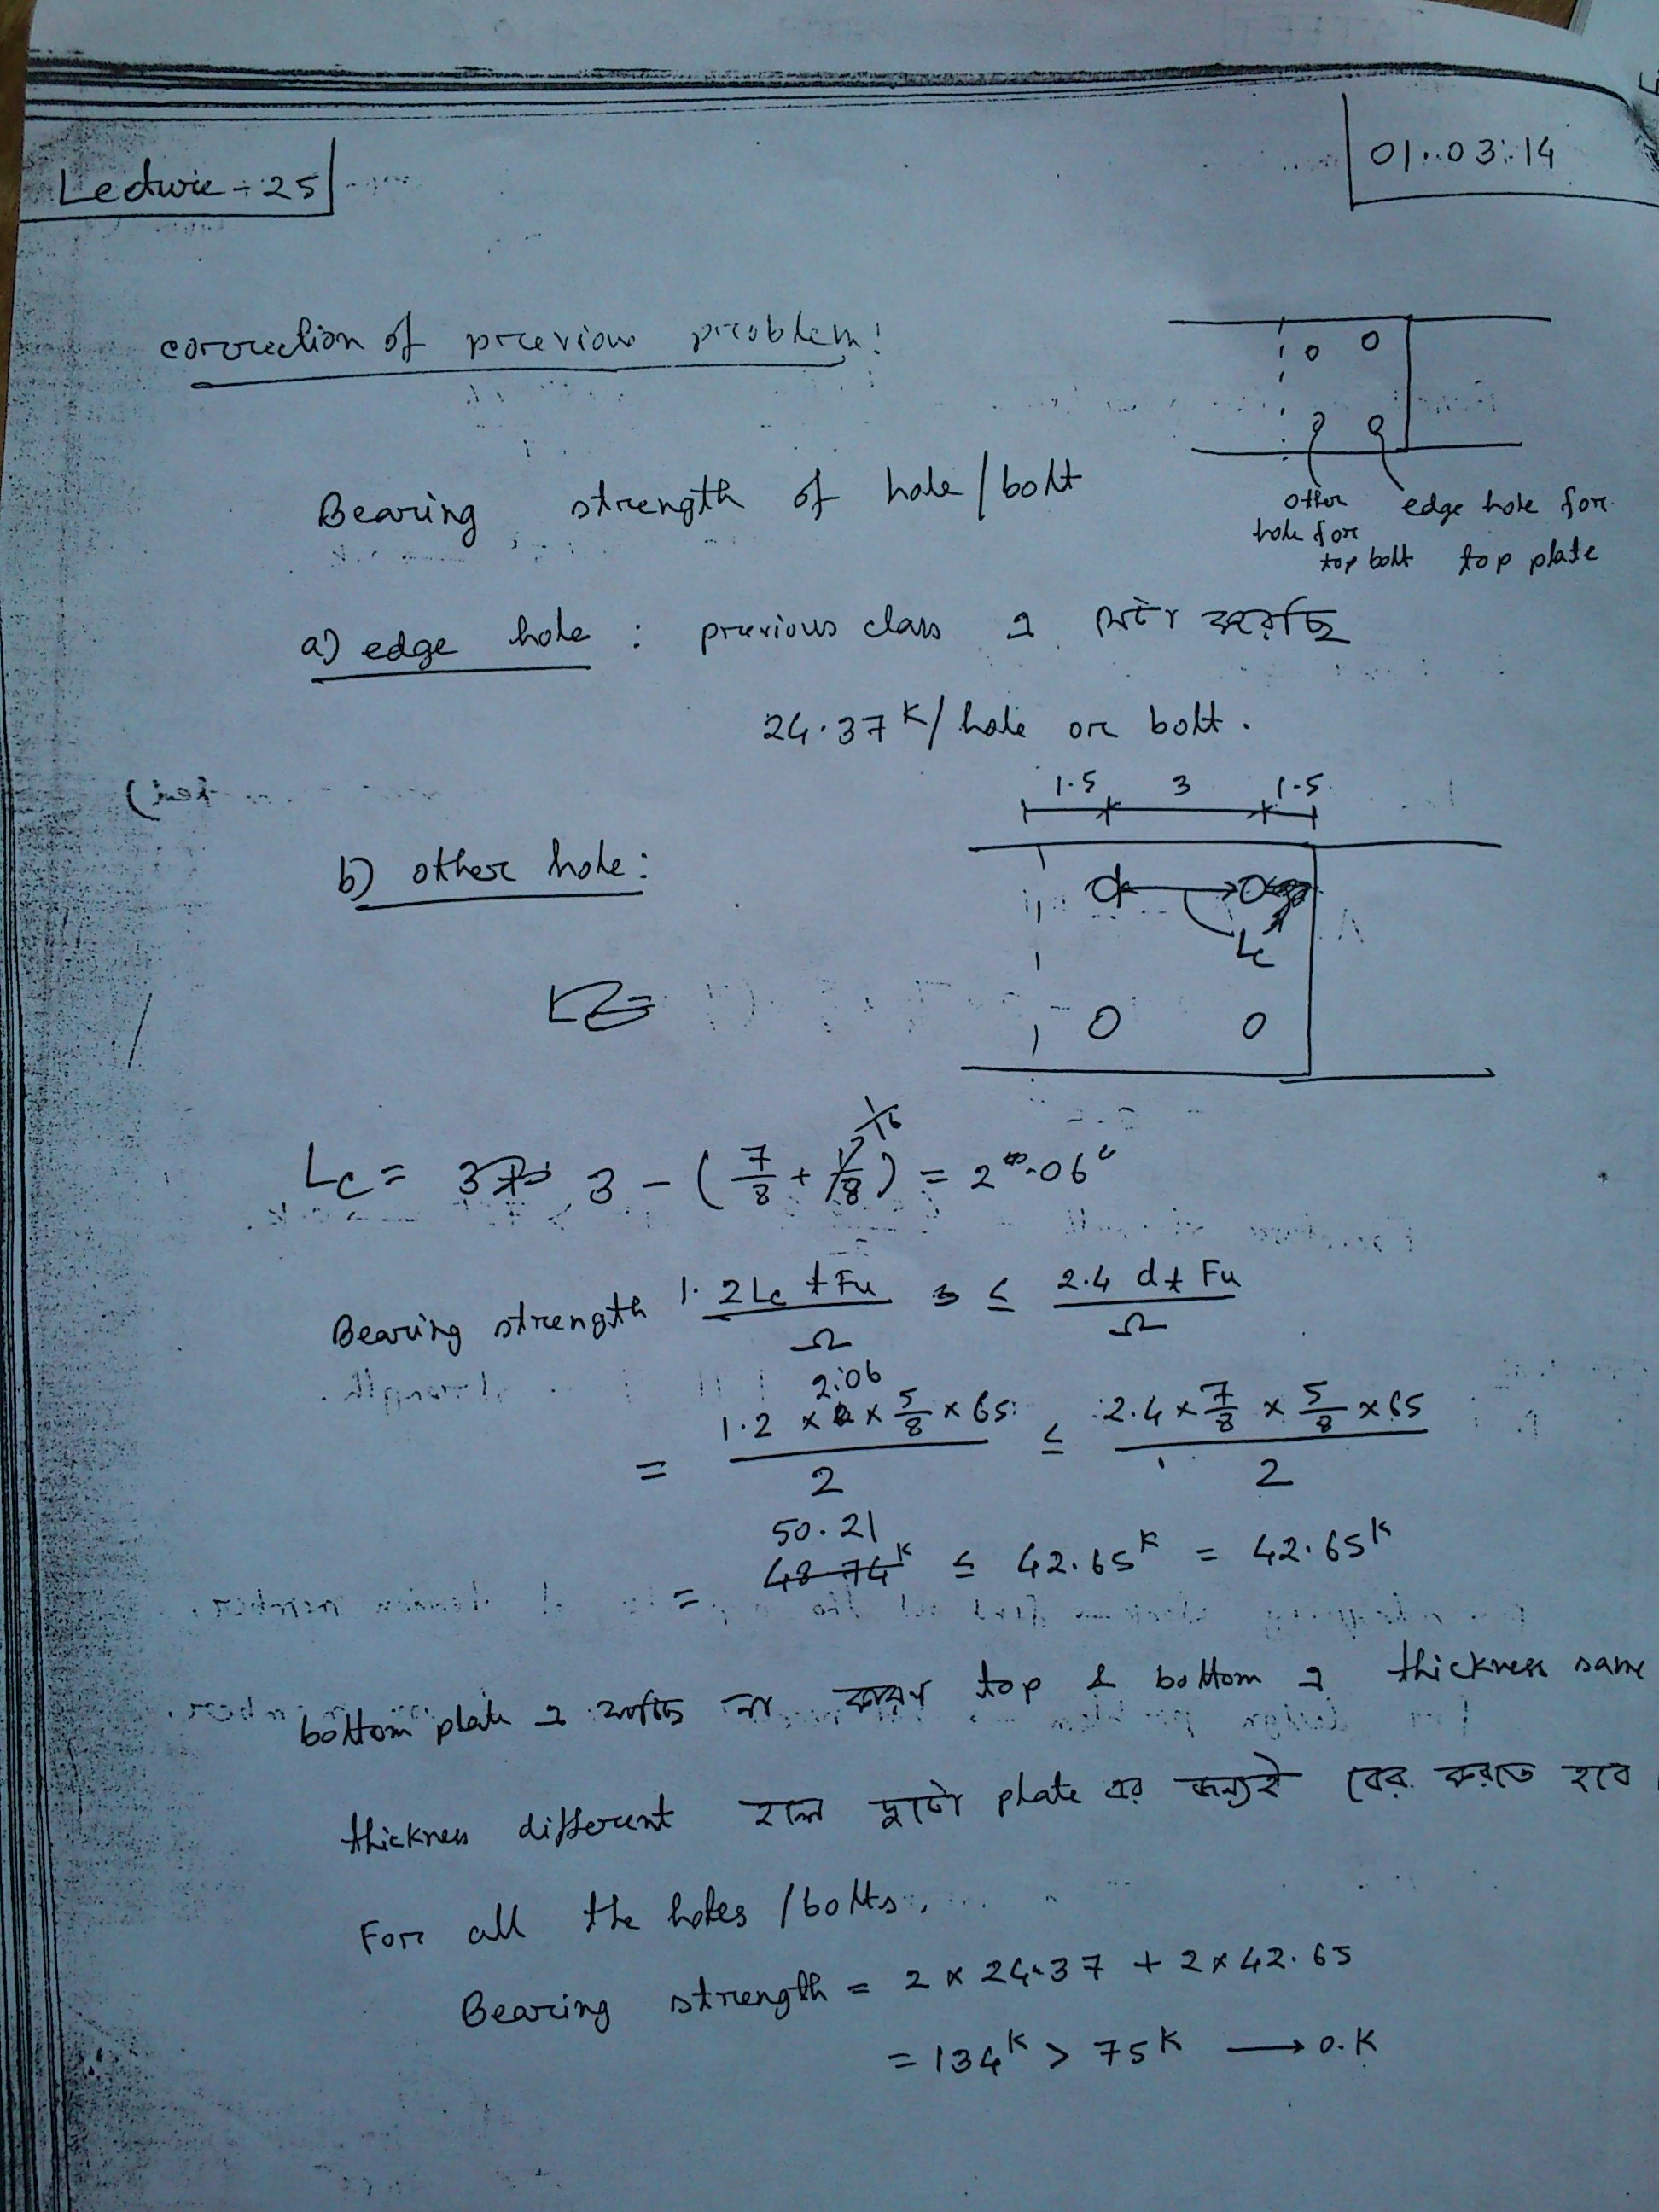 Lecture - 25
01.03.14
correction of previous problem:
Bearing strength of hole/bolt
other hole for top bolt
edge hole for top plate
a) edge hole : previous class এ করেছি
24.37 K/hole or bolt.
1.5 3 1.5
b) other hole:
Lc
Lc = 3 - (7/8 + 1/16) = 2.06"
Bearing strength 1.2 Lc t Fu / Ω ≤ 2.4 d t Fu / Ω
= 1.2 × 2.06 × 5/8 × 65 / 2 ≤ 2.4 × 7/8 × 5/8 × 65 / 2
= 50.21 ≤ 42.65 K = 42.65 K
bottom plate এ না কারণ top & bottom এ thickness same
thickness different হলে দুটো plate এর জন্যই বের করতে হবে
For all the holes/bolts,
Bearing strength = 2 × 24.37 + 2 × 42.65
= 134 K > 75 K → O.K